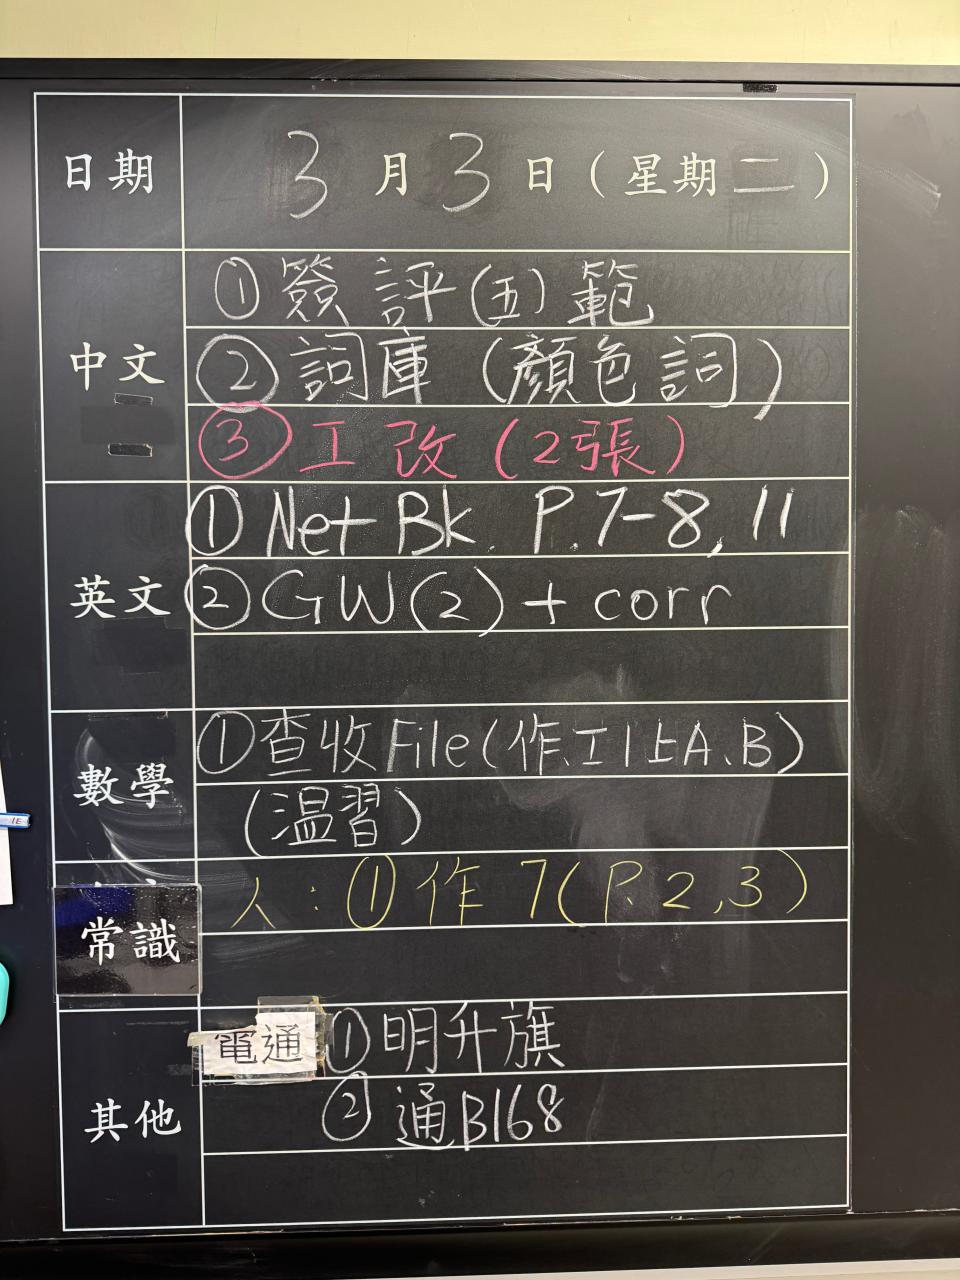 日期 3月3日(星期二)
中文
①簽評(五)範
②詞庫(顏色詞)
③工改(2張)
英文
①Net Bk. P.7-8, 11
②GW(2)+corr
數學
①查收File(作、工1上A、B)
(温習)
常識
人:①作7(P.2,3)
其他
電通 ①明升旗
②通B168
1E